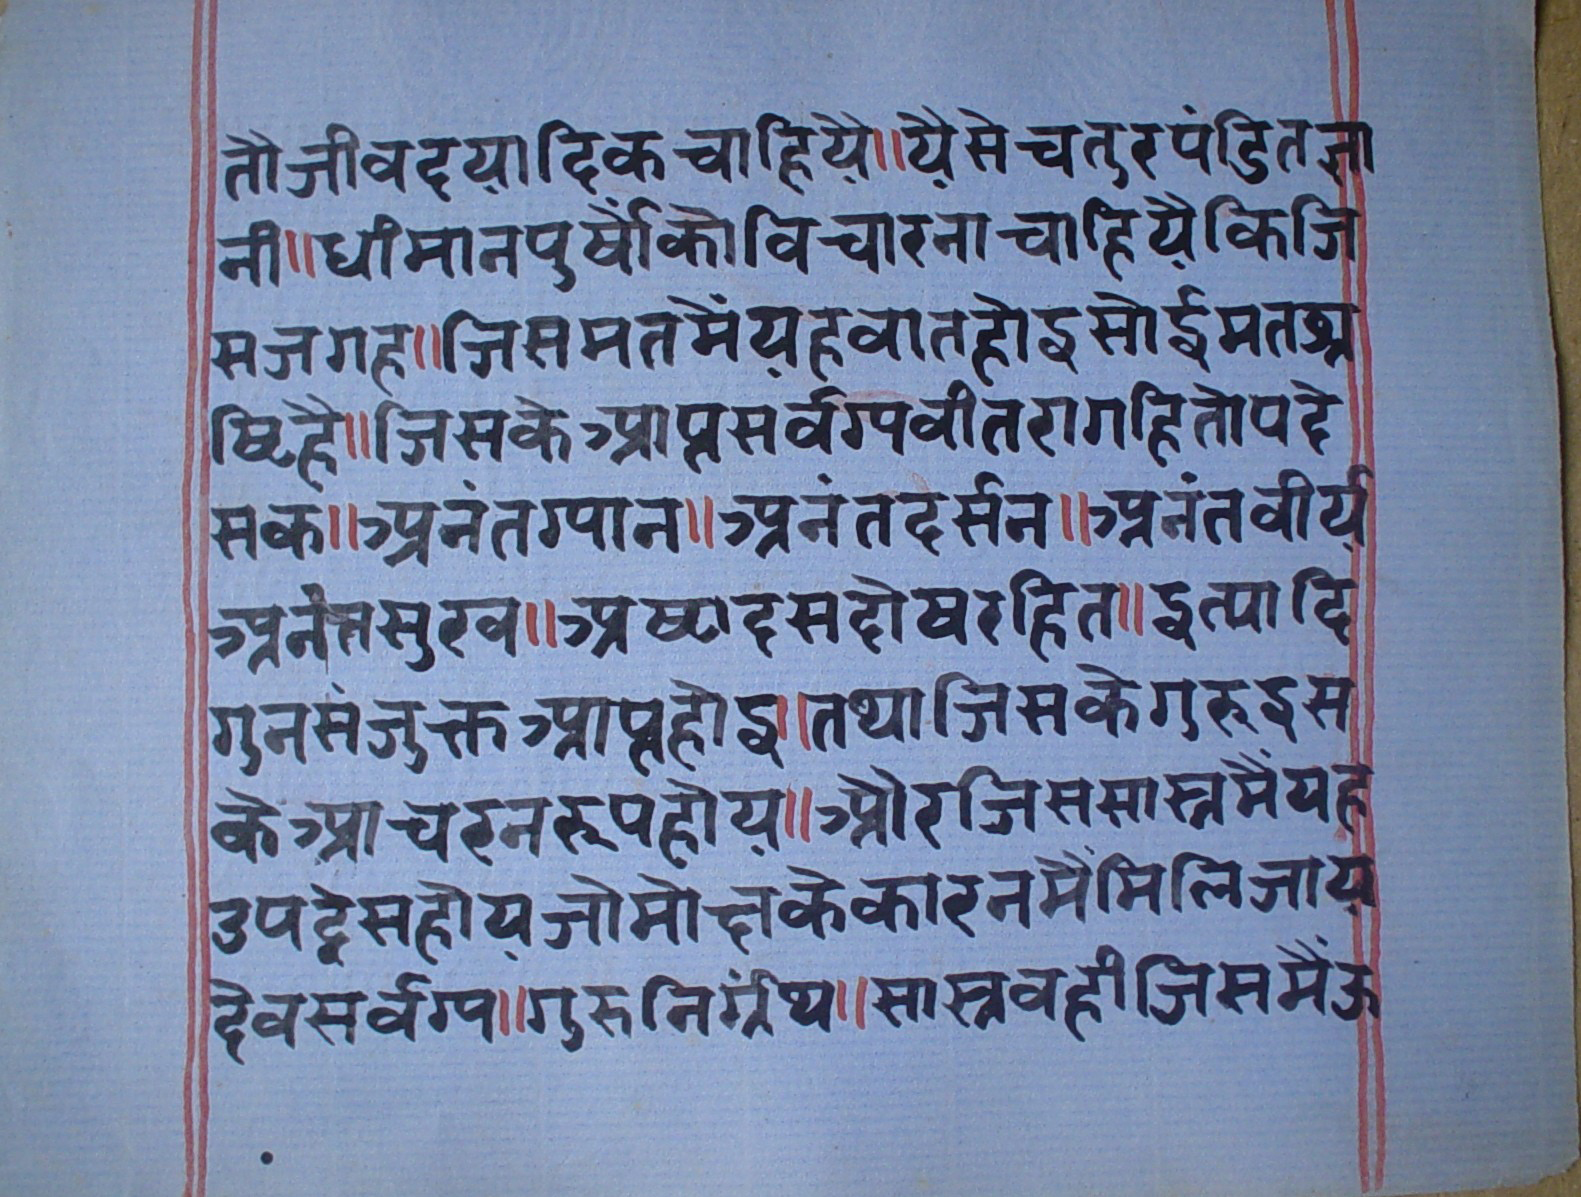 तौजीवदयादिकचाहियै॥यैसेचतुरपंडितज्ञा
नी॥धीमानपुर्षौंकौविचारनाचाहियैकिजि
सजगह॥जिसमतमैंयहवातहोइसोईमतश्रे
ष्टिहै॥जिसकेआप्तसर्वग्यवीतरागहितोपदे
सक॥अनंतग्यान॥अनंतदर्सन॥अनंतवीर्य
अनंतसुख॥अष्टादसदोषरहित॥इत्यादि
गुनसंजुक्तआप्तहोइ॥तथाजिसकेगुरुइस
केआचरनरूपहोय॥औरजिससास्त्रमैंयह
उपद्देसहोयजोमोक्षकेकारनमैंमिलिजाय
देवसर्वग्य॥गुरुनिर्ग्रंथ॥सास्त्रवहीजिसमैंऊ